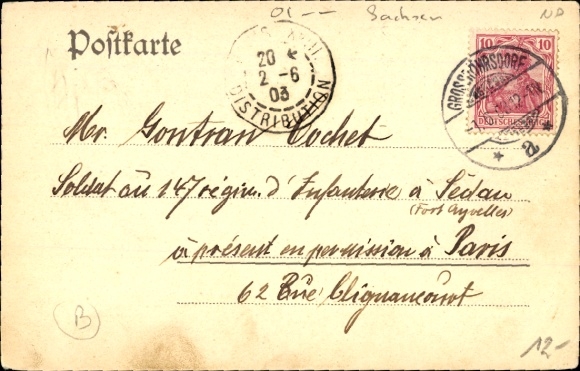 01 -- Sachsen ND
Postkarte
20
2-6
03
DISTRIBUTION
10 10
DEUTSCHES REICH
GROSSRÖHRSDORF
* a *
Mr. Gontran Cochet
Soldat au 147 régim. d'Infanterie à Sédan
(Fort Ayvelles)
à présent en permission à Paris
62 Rue Clignancourt
B
12-